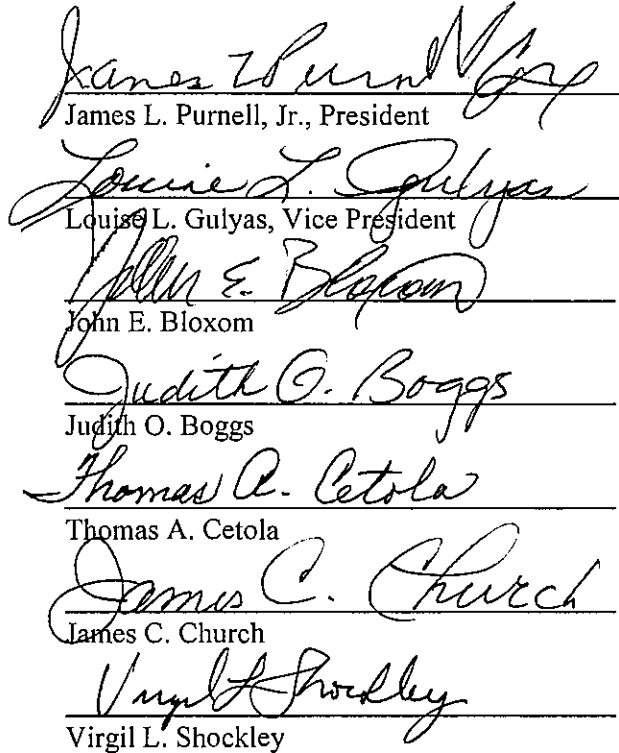 James L Purnell Jr
James L. Purnell, Jr., President
Louise L. Gulyas
Louise L. Gulyas, Vice President
John E. Bloxom
John E. Bloxom
Judith O. Boggs
Judith O. Boggs
Thomas A. Cetola
Thomas A. Cetola
James C. Church
James C. Church
Virgil L Shockley
Virgil L. Shockley